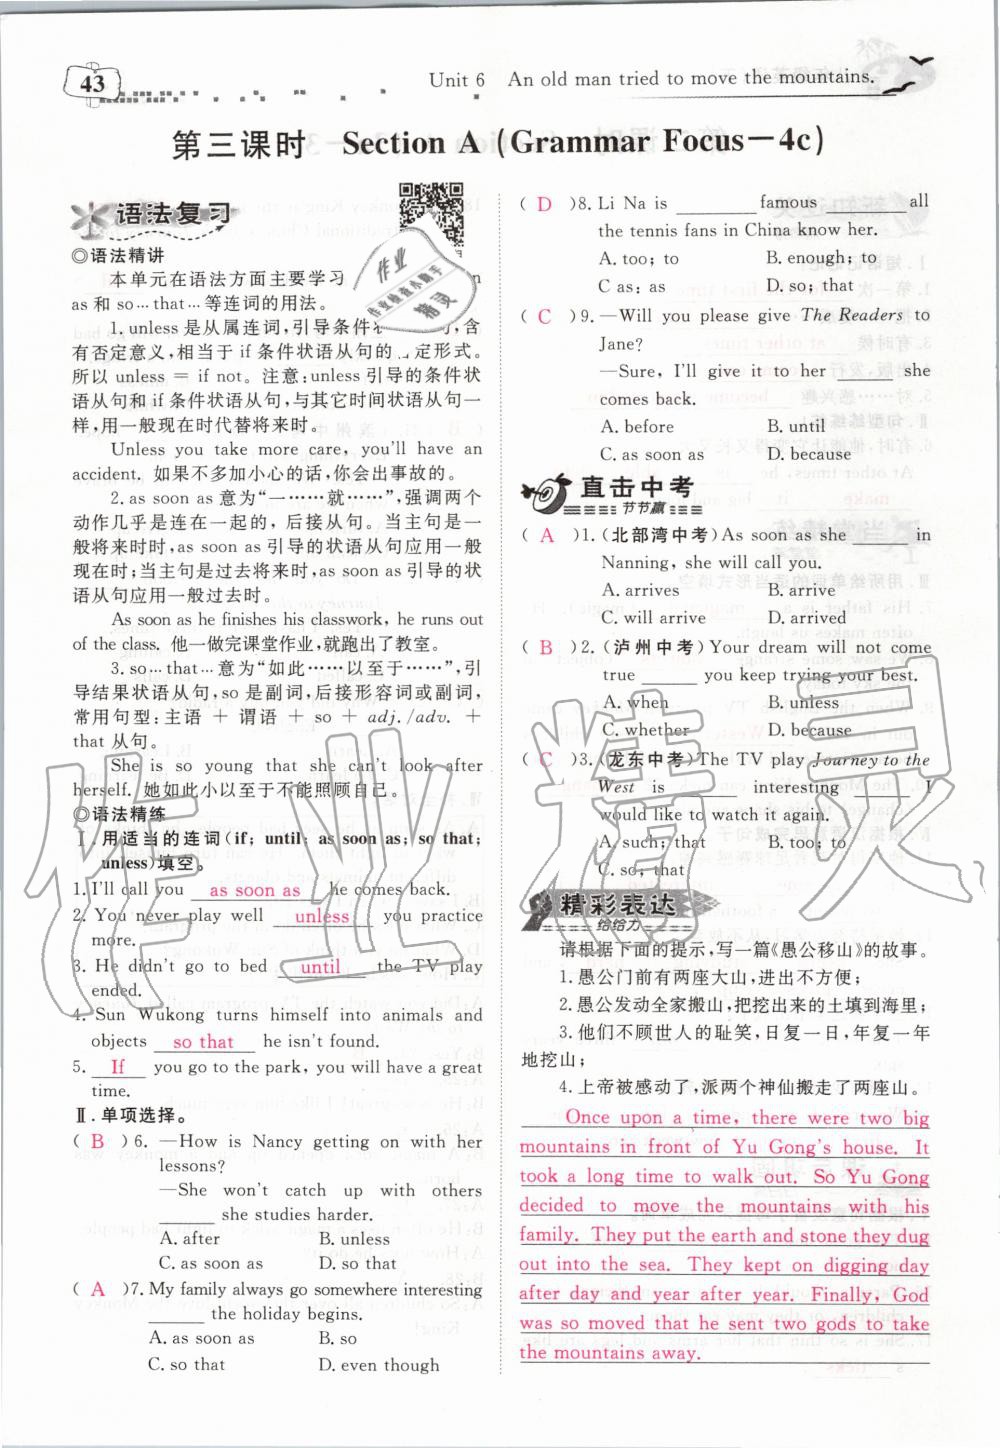 43
Unit 6 An old man tried to move the mountains.
第三课时 Section A (Grammar Focus－4c)
语法复习
◎语法精讲
本单元在语法方面主要学习
as 和 so…that…等连词的用法。
1. unless 是从属连词，引导条件 句，含
有否定意义，相当于 if 条件状语从句的 定形式。
所以 unless ＝ if not。注意：unless 引导的条件状
语从句和 if 条件状语从句，与其它时间状语从句一
样，用一般现在时代替将来时。
Unless you take more care, you'll have an
accident. 如果不多加小心的话，你会出事故的。
2. as soon as 意为“一……就……”，强调两个
动作几乎是连在一起的，后接从句。当主句是一
般将来时时，as soon as 引导的状语从句应用一般
现在时；当主句是过去将来时，as soon as 引导的状
语从句应用一般过去时。
As soon as he finishes his classwork, he runs out
of the class. 他一做完课堂作业，就跑出了教室。
3. so…that…意为“如此……以至于……”，引
导结果状语从句，so 是副词，后接形容词或副词，
常用句型：主语 ＋ 谓语 ＋ so ＋ adj./adv. ＋
that 从句。
She is so young that she can't look after
herself. 她如此小以至于不能照顾自己。
◎语法精练
Ⅰ. 用适当的连词(if; until; as soon as; so that;
unless)填空。
1. I'll call you as soon as he comes back.
2. You never play well unless you practice
more.
3. He didn't go to bed until the TV play
ended.
4. Sun Wukong turns himself into animals and
objects so that he isn't found.
5. If you go to the park, you will have a great
time.
Ⅱ. 单项选择。
( B )6. —How is Nancy getting on with her
lessons?
—She won't catch up with others
______ she studies harder.
A. after B. unless
C. as soon as D. so that
( A )7. My family always go somewhere interesting
______ the holiday begins.
A. as soon as B. so
C. so that D. even though
( D )8. Li Na is ______ famous ______ all
the tennis fans in China know her.
A. too; to B. enough; to
C as; as D. so; that
( C )9. —Will you please give The Readers to
Jane?
—Sure, I'll give it to her ______ she
comes back.
A. before B. until
C. as soon as D. because
直击中考
节节赢
( A )1. (北部湾中考)As soon as she ______ in
Nanning, she will call you.
A. arrives B. arrive
C. will arrive D. arrived
( B )2. (泸州中考)Your dream will not come
true ______ you keep trying your best.
A. when B. unless
C. whether D. because
( C )3. (龙东中考)The TV play Journey to the
West is ______ interesting ______ I
would like to watch it again.
A. such; that B. too; to
C. so; that
精彩表达
给给力
请根据下面的提示，写一篇《愚公移山》的故事。
1. 愚公门前有两座大山，进出不方便；
2. 愚公发动全家搬山，把挖出来的土填到海里；
3. 他们不顾世人的耻笑，日复一日，年复一年
地挖山；
4. 上帝被感动了，派两个神仙搬走了两座山。
Once upon a time, there were two big
mountains in front of Yu Gong's house. It
took a long time to walk out. So Yu Gong
decided to move the mountains with his
family. They put the earth and stone they dug
out into the sea. They kept on digging day
after day and year after year. Finally, God
was so moved that he sent two gods to take
the mountains away.
作业精灵